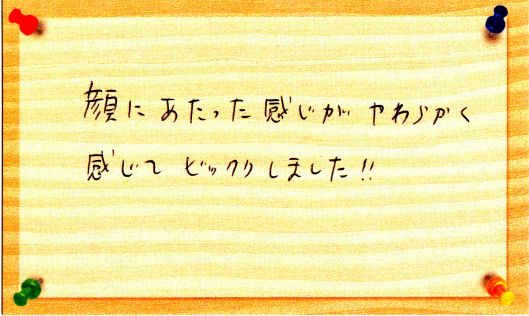 顔にあたった感じがやわらかく
感じてビックリしました!!